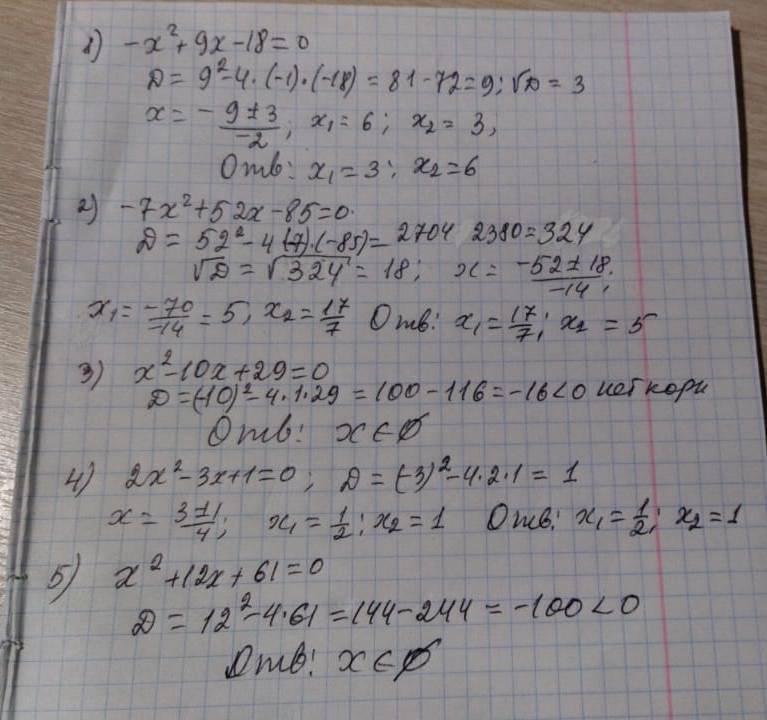 1) -x²+9x-18=0
D = 9²-4·(-1)·(-18) = 81-72=9; √D = 3
x = -9±3/-2; x₁=6; x₂=3;
Отв: x₁=3; x₂=6
2) -7x²+52x-85=0.
D = 52²-4(-7)·(-85)= 2704 2380=324
√D = √324 = 18; x = -52±18/-14;
x₁=-70/-14=5, x₂=17/7 Отв: x₁=17/7; x₂=5
3) x²-10x+29=0
D=(-10)²-4·1·29=100-116=-16<0 нет корн
Отв: x∈∅
4) 2x²-3x+1=0; D=(-3)²-4·2·1=1
x = 3±1/4; x₁=1/2; x₂=1 Отв: x₁=1/2; x₂=1
5) x²+12x+61=0
D = 12²-4·61=144-244=-100<0
Отв: x∈∅